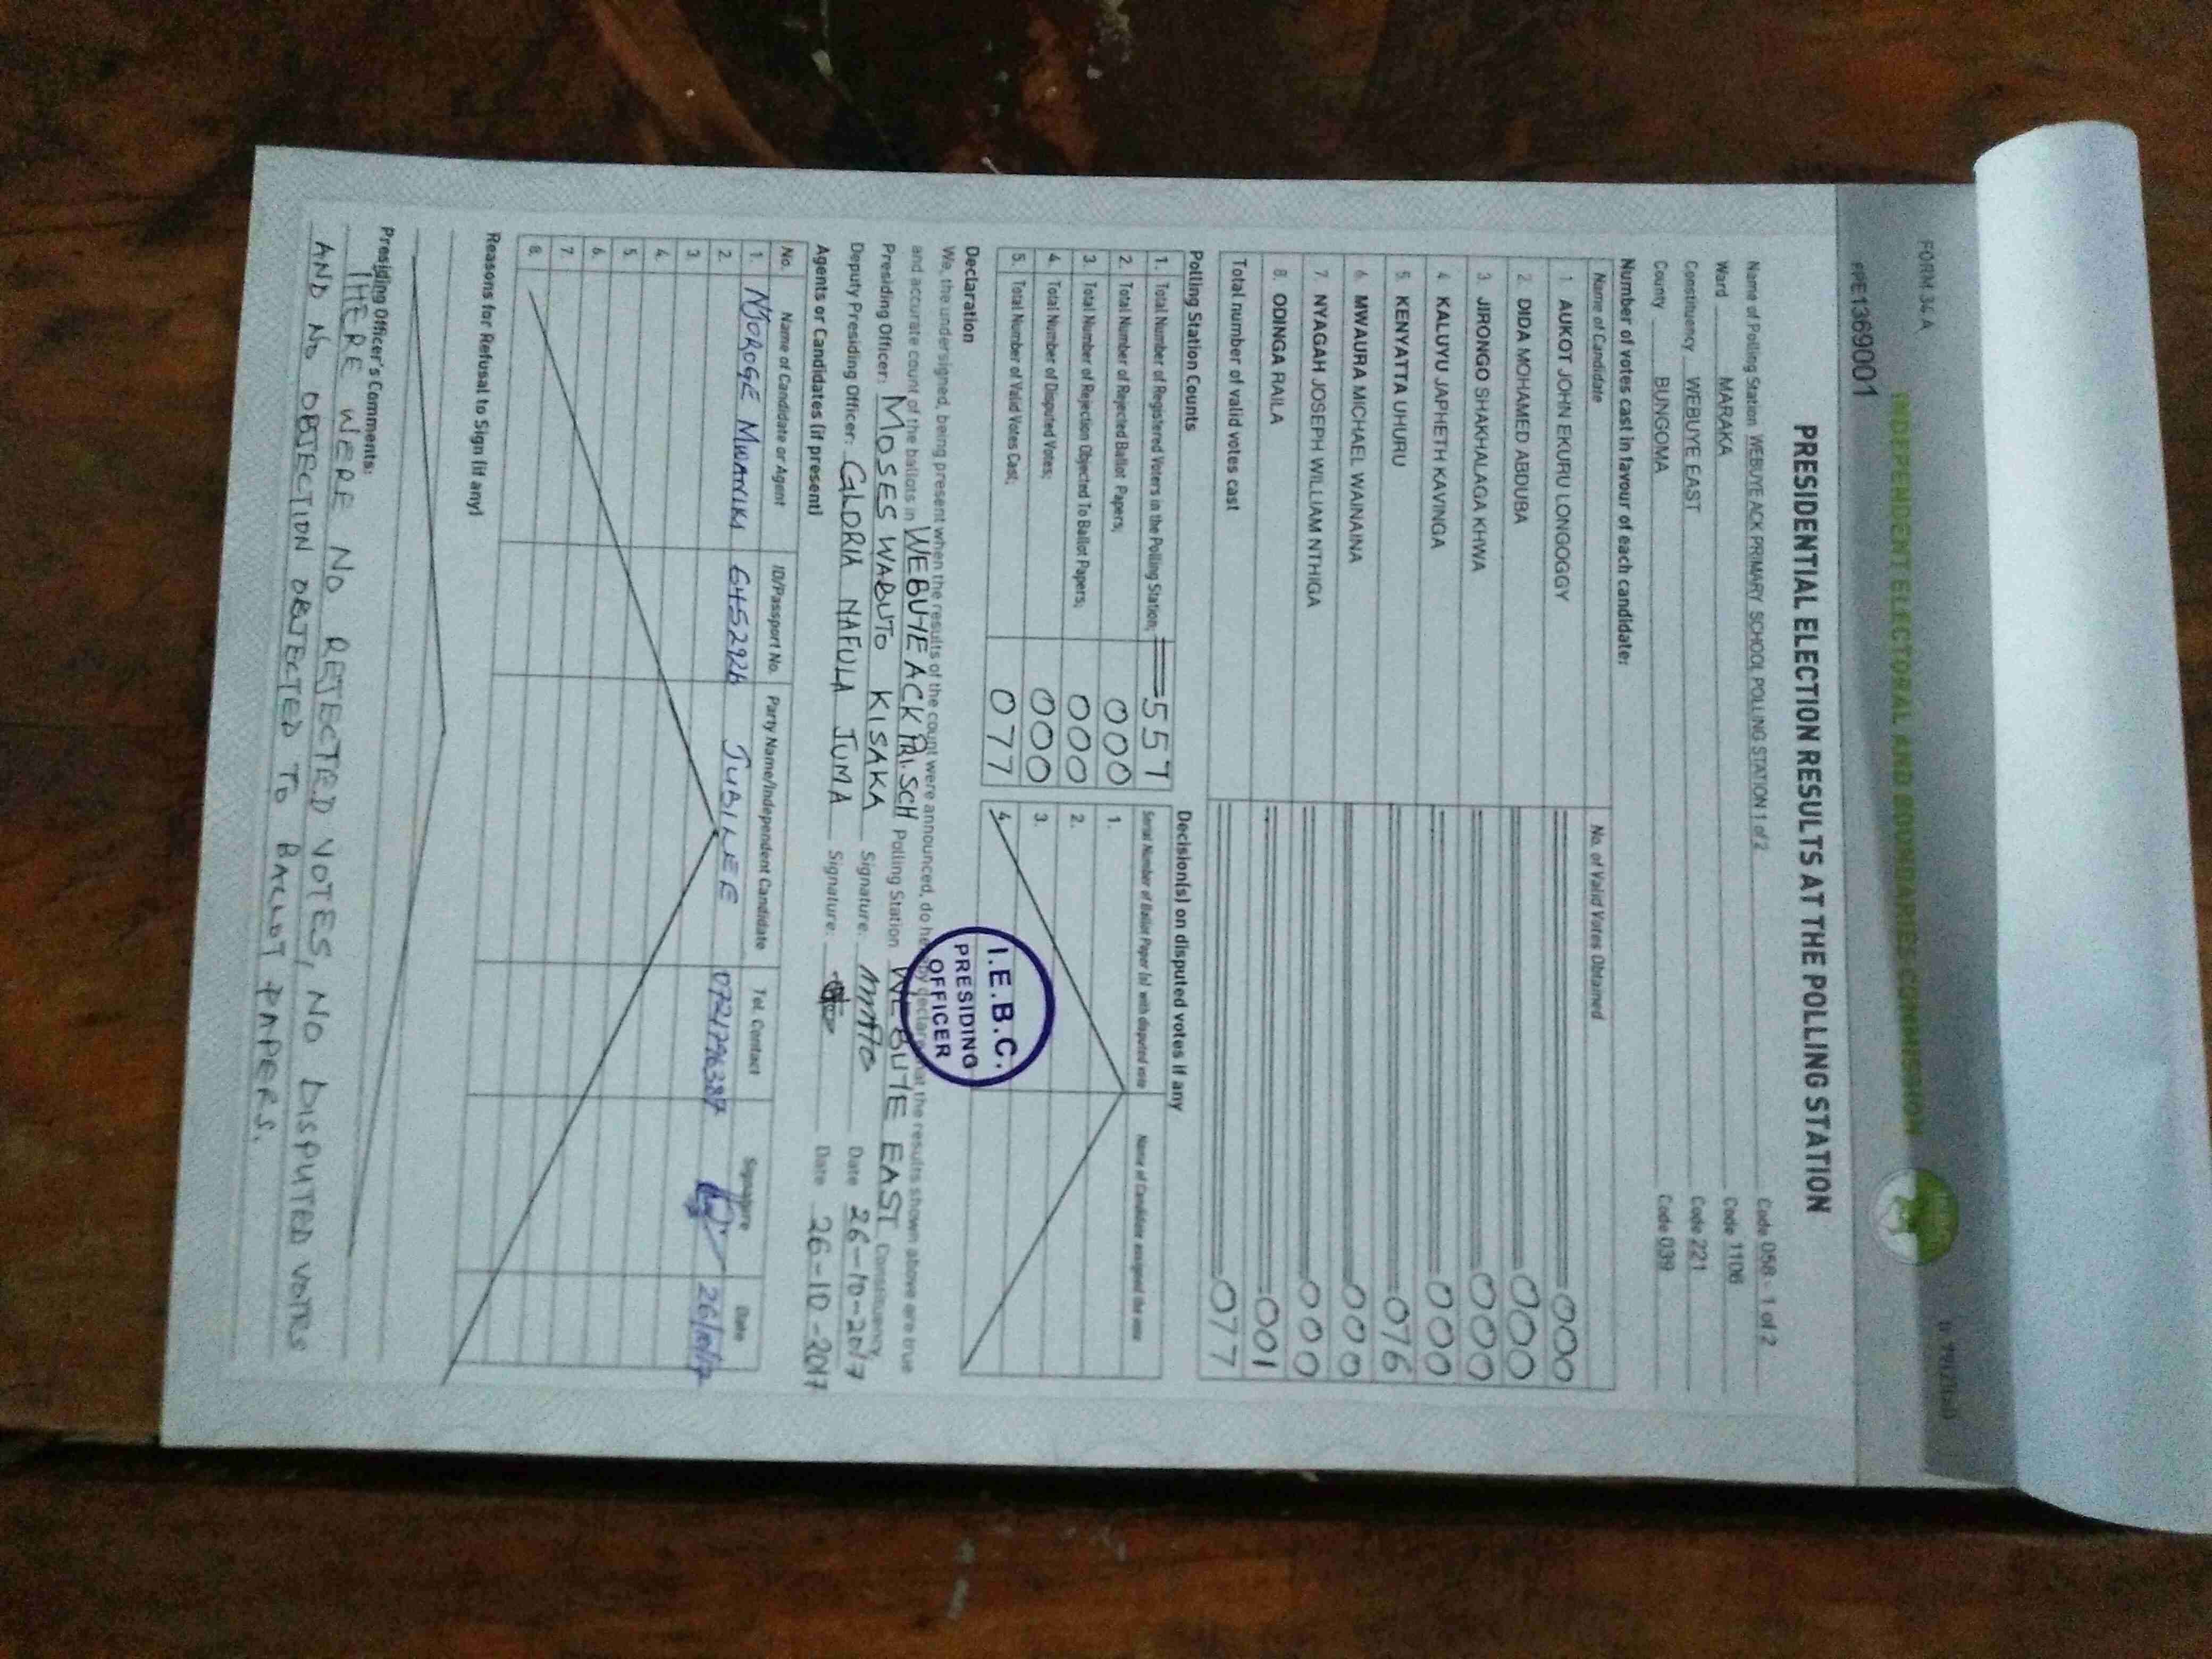 FORM 34 A
INDEPENDENT ELECTORAL AND BOUNDARIES COMMISSION
PPE1369001
PRESIDENTIAL ELECTION RESULTS AT THE POLLING STATION
Name of Polling Station WEBUYE ACK PRIMARY SCHOOL POLLING STATION 1 of 2 Code 058 - 1 of 2
Ward MARAKA Code 1106
Constituency WEBUYE EAST Code 221
County BUNGOMA Code 039
Number of votes cast in favour of each candidate:
Name of Candidate No. of Valid Votes Obtained
1 AUKOT JOHN EKURU LONGOGGY 000
2 DIDA MOHAMED ABDUBA 000
3 JIRONGO SHAKHALAGA KHWA 000
4 KALUYU JAPHETH KAVINGA 000
5 KENYATTA UHURU 076
6 MWAURA MICHAEL WAINAINA 000
7 NYAGAH JOSEPH WILLIAM NTHIGA 000
8 ODINGA RAILA 001
Total number of valid votes cast 077
Polling Station Counts
1. Total Number of Registered Voters in the Polling Station; 557
2. Total Number of Rejected Ballot Papers; 000
3. Total Number of Rejection Objected To Ballot Papers; 000
4. Total Number of Disputed Votes; 000
5. Total Number of Valid Votes Cast; 077
Decision(s) on disputed votes if any
Serial Number of Ballot Paper (s) with disputed vote Name of Candidate assigned the vote
1.
2.
3.
4.
I.E.B.C.
PRESIDING
OFFICER
Declaration
We, the undersigned, being present when the results of the count were announced, do hereby declare that the results shown above are true
and accurate count of the ballots in WEBUYE ACK PRI. SCH Polling Station WEBUYE EAST Constituency
Presiding Officer: MOSES WABUTO KISAKA Signature: Date 26-10-2017
Deputy Presiding Officer: GLORIA NAFULA JUMA Signature: Date 26-10-2017
Agents or Candidates (if present)
No. Name of Candidate or Agent ID/Passport No. Party Name/Independent Candidate Tel. Contact Signature Date
1. NJOROGE MWANIKI JUBILEE 26/10/17
2.
3.
4.
5.
6.
7.
8.
Reasons for Refusal to Sign (if any)
Presiding Officer's Comments:
THERE WERE NO REJECTED VOTES, NO DISPUTED VOTES
AND NO OBJECTION OBJECTED TO BALLOT PAPERS.